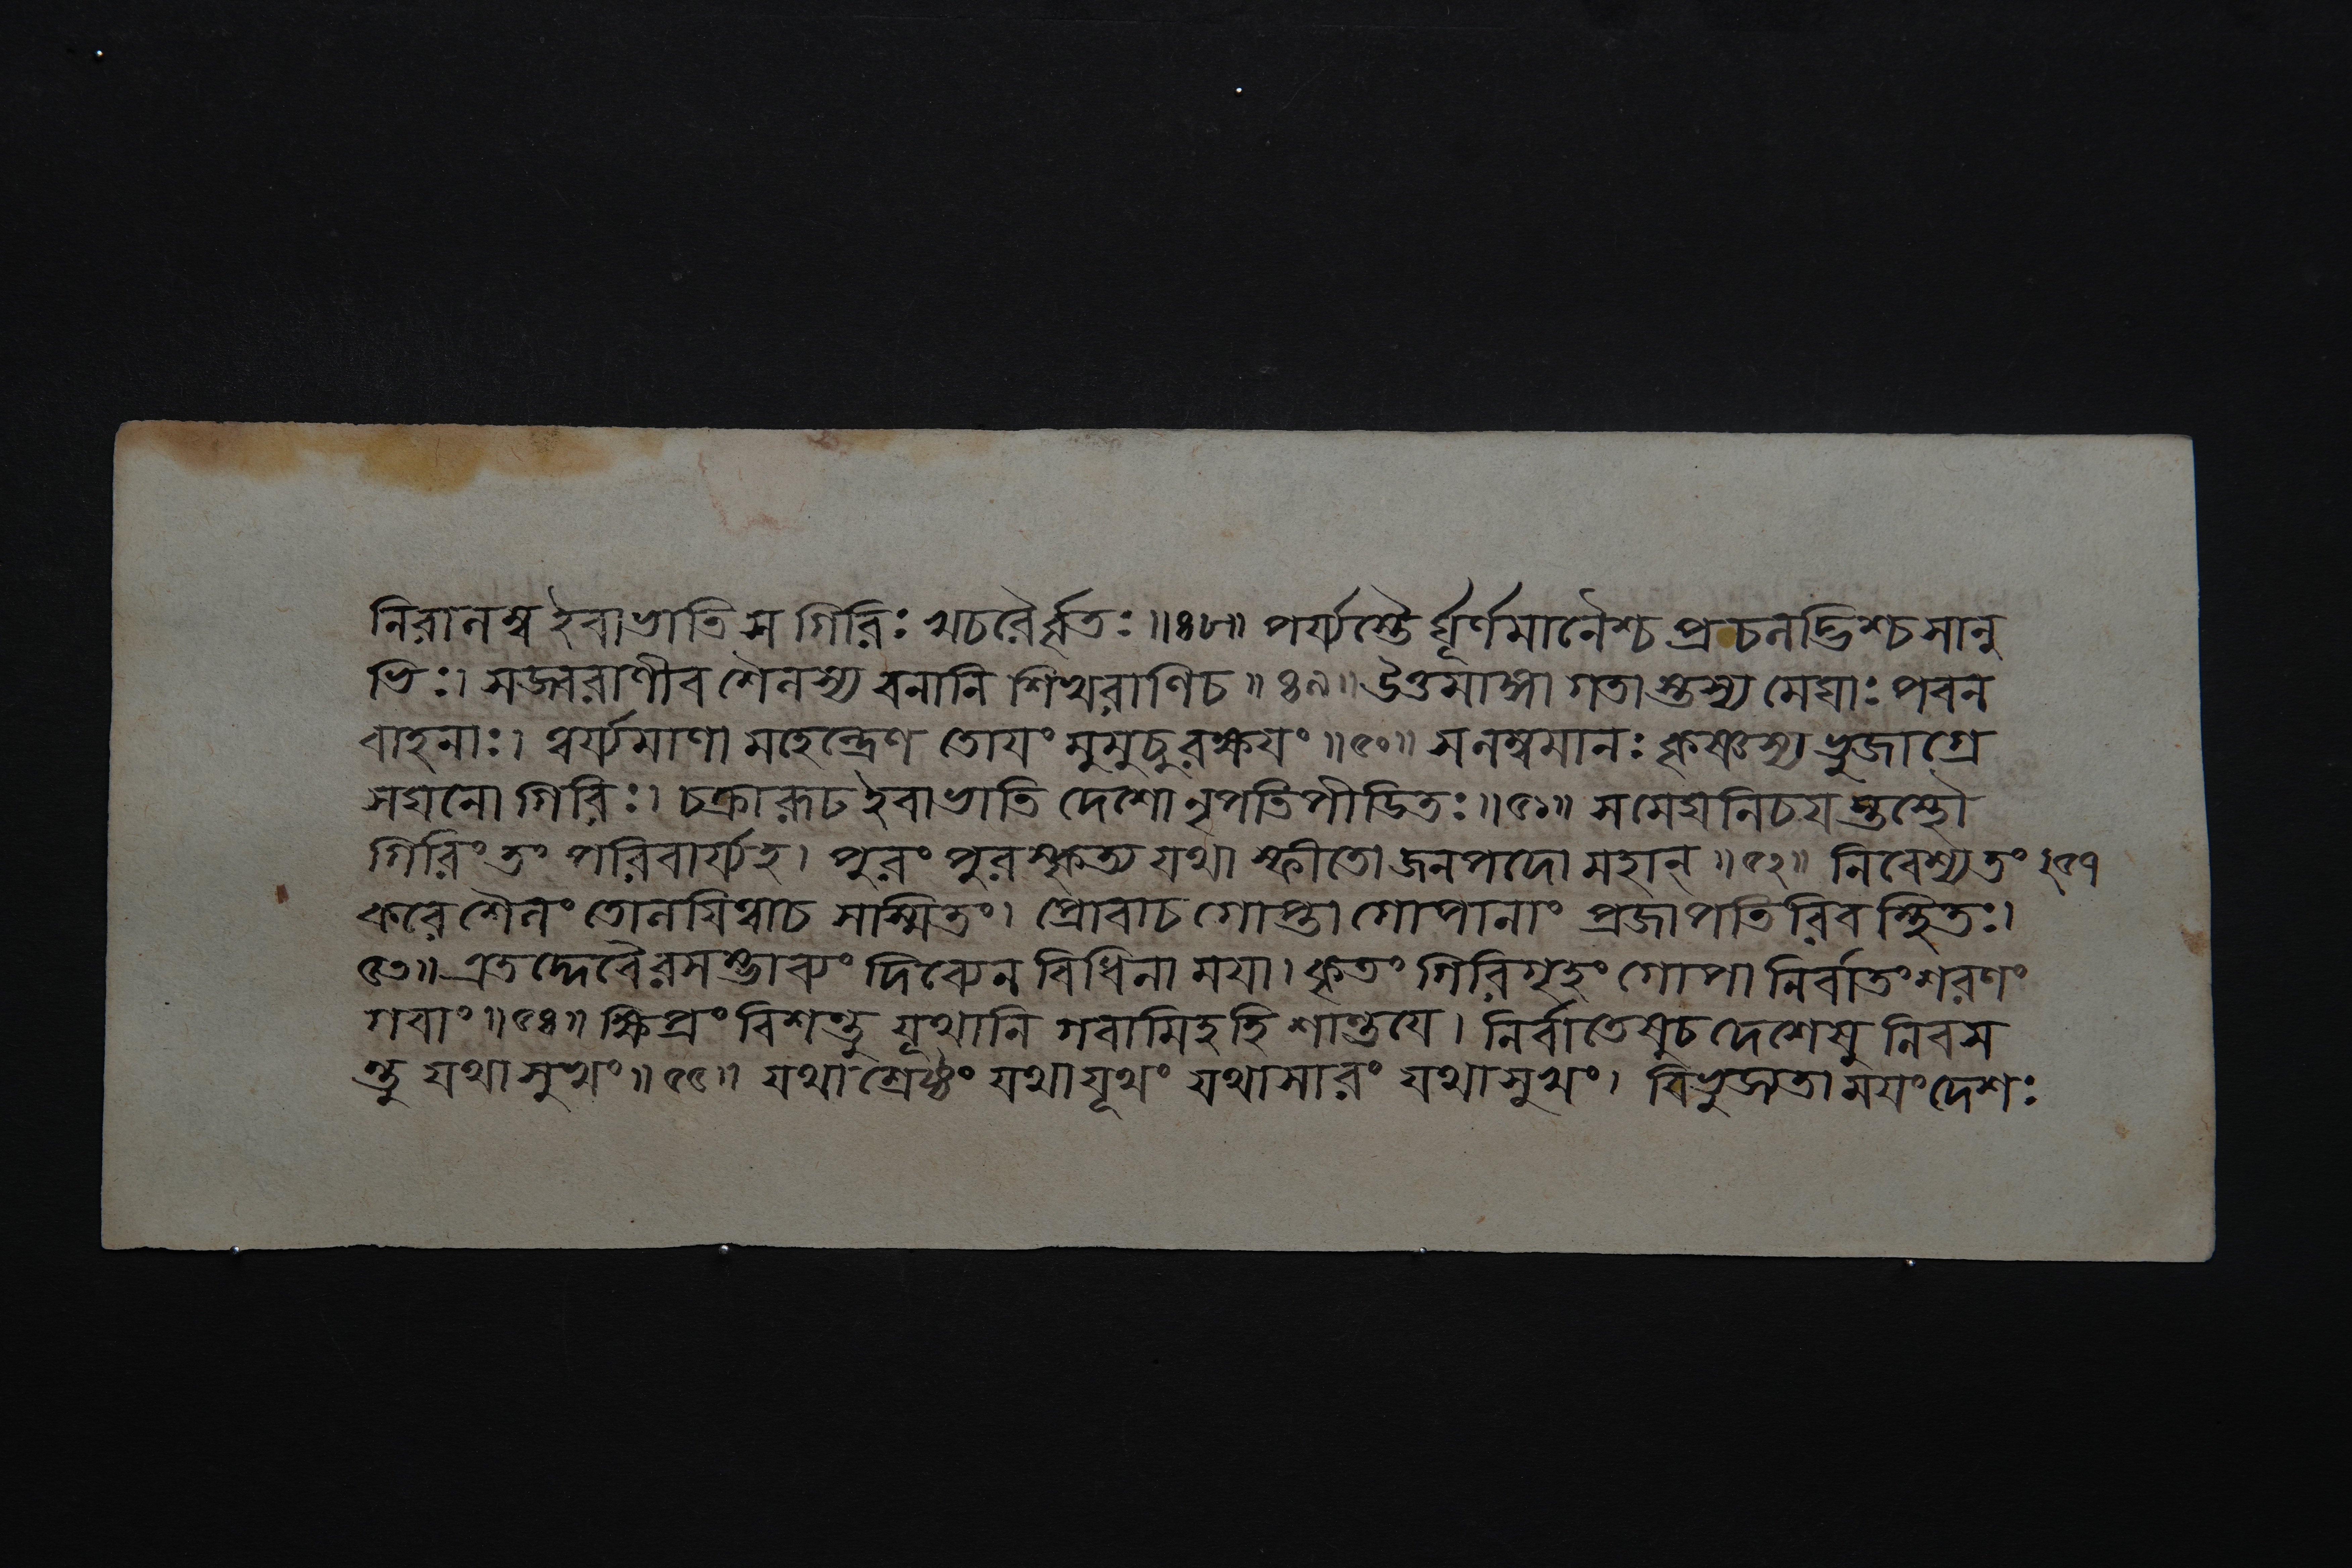 নিরালম্ব ইবাভাতি স গিরিঃ খচরৈর্বৃতঃ॥৪৮॥ পর্য্যস্তৈ র্ঘূর্ণমানৈশ্চ প্রচলদ্ভিশ্চ সানু
ভিঃ। সজ্বরাণীব শৈলস্য বনানি শিখরাণিচ॥৪৯॥ উত্তমাঙ্গা গতা স্তস্য মেঘাঃ পবন
বাহনাঃ। ত্বর্য্যমাণা মহেন্দ্রেণ তোযং মুমুচুরক্ষযং॥৫০॥ সলম্বমানঃ কৃষ্ণস্য ভুজাগ্রে
সঘনো গিরিঃ। চক্রারূঢ ইবাভাতি দেশো নৃপতিপীডিতঃ॥৫১॥ সমেঘনিচয স্তস্থৌ
গিরিং তং পরিবার্য্যহ। পুরং পুরস্কৃত্য যথা স্ফীতো জনপদো মহান্॥৫২॥ নিবেশ্যতং ২৫৭
করে শৈলং তোলযিত্বাচ সাস্মিতং। প্রোবাচ গোপ্তা গোপানাং প্রজাপতি রিব স্থিতঃ।
৫৩॥ এতদ্দেবৈরসম্ভাব্যং দিব্যেন বিধিনা মযা। কৃতং গিরিগৃহং গোপা নির্বাতং শরণং
গবাং॥৫৪॥ ক্ষিপ্রং বিশন্তু যূথানি গবামিহহি শান্তযে। নির্বাতেষুচ দেশেষু নিবস
ন্তু যথাসুখং॥৫৫॥ যথাশ্রেষ্ঠং যথাযূথং যথাসারং যথাসুখং। বিভুজ্যতা মযং দেশঃ